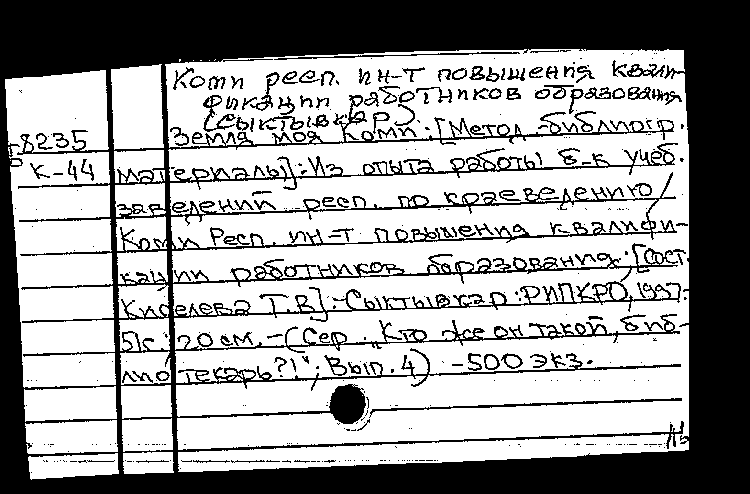 Коми респ. ин-т повышения квали-
фикации работников образования
(Сыктывкар)
8235 Земля моя Коми : [Метод.-библиогр.
К-44 материалы] : Из опыта работы б-к учеб.
заведений респ. по краеведению /
Коми Респ. ин-т повышения квалифи-
кации работников образования; [Сост.
Киселева Т.В.]. - Сыктывкар : РИПКРО, 1997.
51с.; 20 см. - (Сер. „Кто же он такой, биб-
лиотекарь?!"; Вып. 4) - 500 экз.